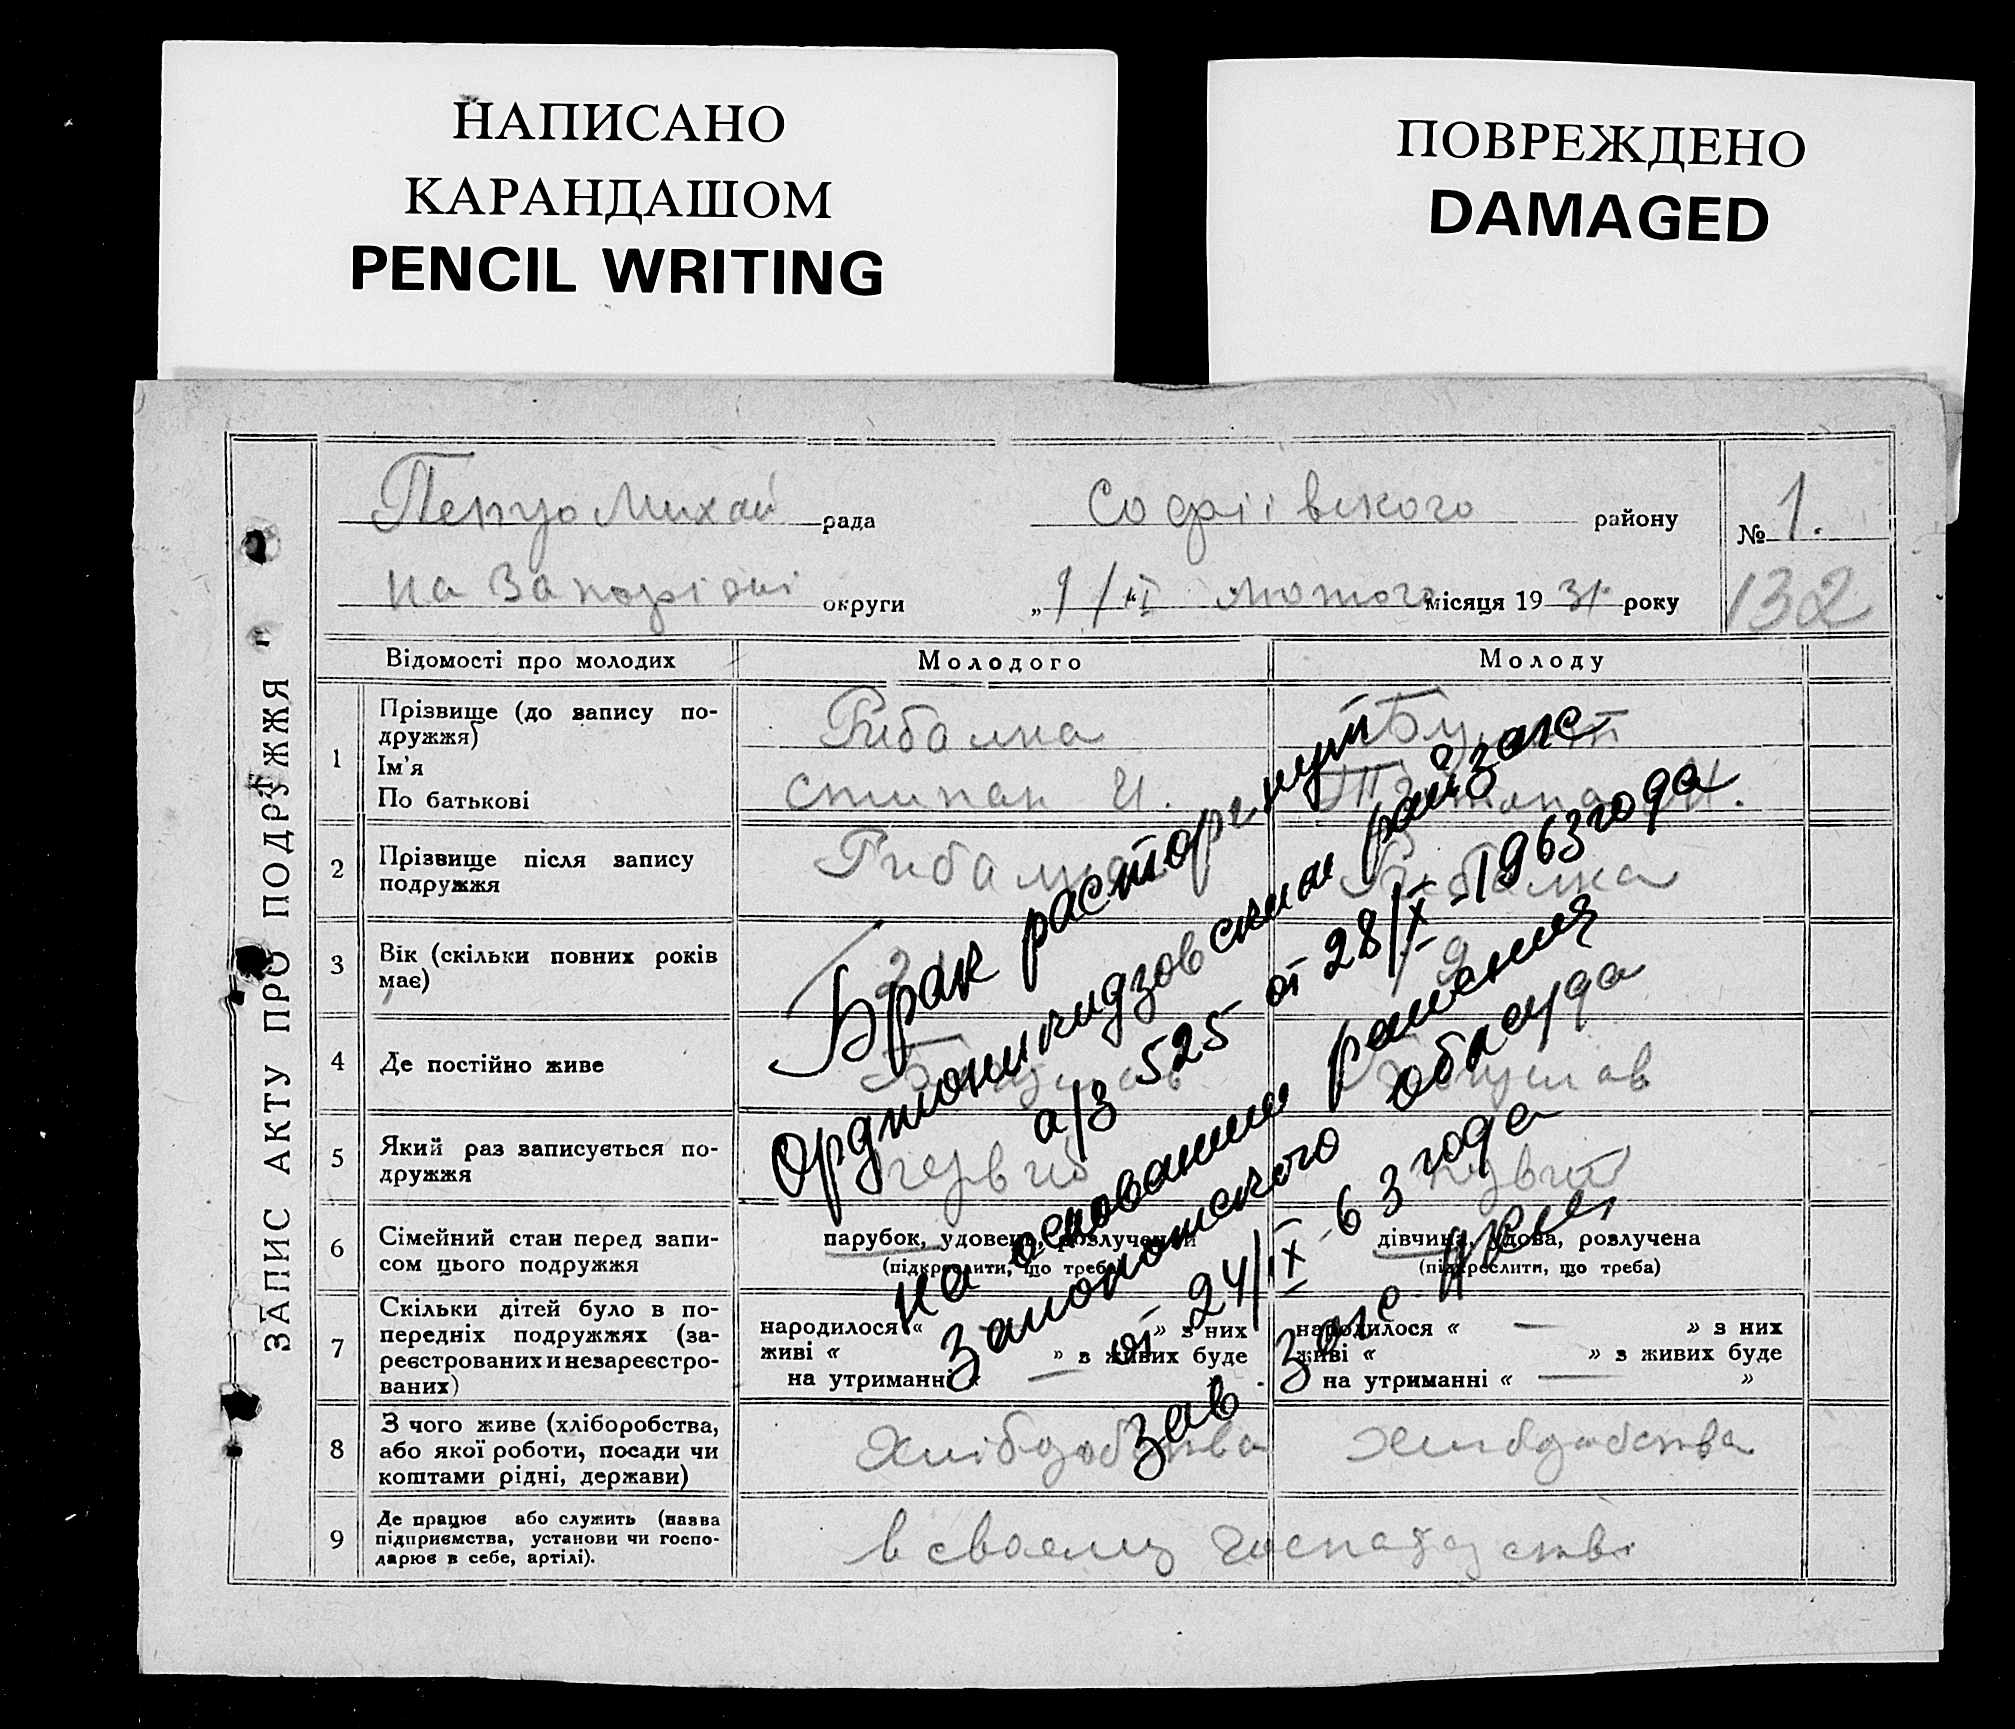 НАПИСАНО
КАРАНДАШОМ
PENCIL WRITING
ПОВРЕЖДЕНО
DAMAGED
ЗАПИС АКТУ ПРО ПОДРУЖЖЯ
рада Софіівського району № 1.
на Запоріжі округи „ 9/II лютого місяця 19 31 року 132
Відомості про молодих Молодого Молоду
1 Прізвище (до запису по-
дружжя) Рибалка
Ім'я
По батькові Степан И.
2 Прізвище після запису
подружжя Рибалка Рибалка
3 Вік (скільки повних років
має)
4 Де постійно живе
5 Який раз записується по-
дружжя первий первий
6 Сімейний стан перед запи-
сом цього подружжя
парубок, удовець, розлучений
(підкреслити, що треба)
дівчина, удова, розлучена
(підкреслити, що треба)
7 Скільки дітей було в по-
передніх подружжях (за-
реєстрованих и незареєстро-
ваних)
народилося « » з них
живі « » з живих буде
на утриманні «
народилося « — » з них
живі « » з живих буде
на утриманні « — »
8 З чого живе (хліборобства,
або якої роботи, посади чи
коштами рідні, держави)
9 Де працює або служить (назва
підприємства, установи чи госпо-
дарює в себе, артілі).
в своему
Брак расторгнут
Орджоникидзовским райзагс
а/з 525 от 28/X - 1963 года
на основании решения
Запорожского облсуда
от 24/IX - 63 года
зав. загс